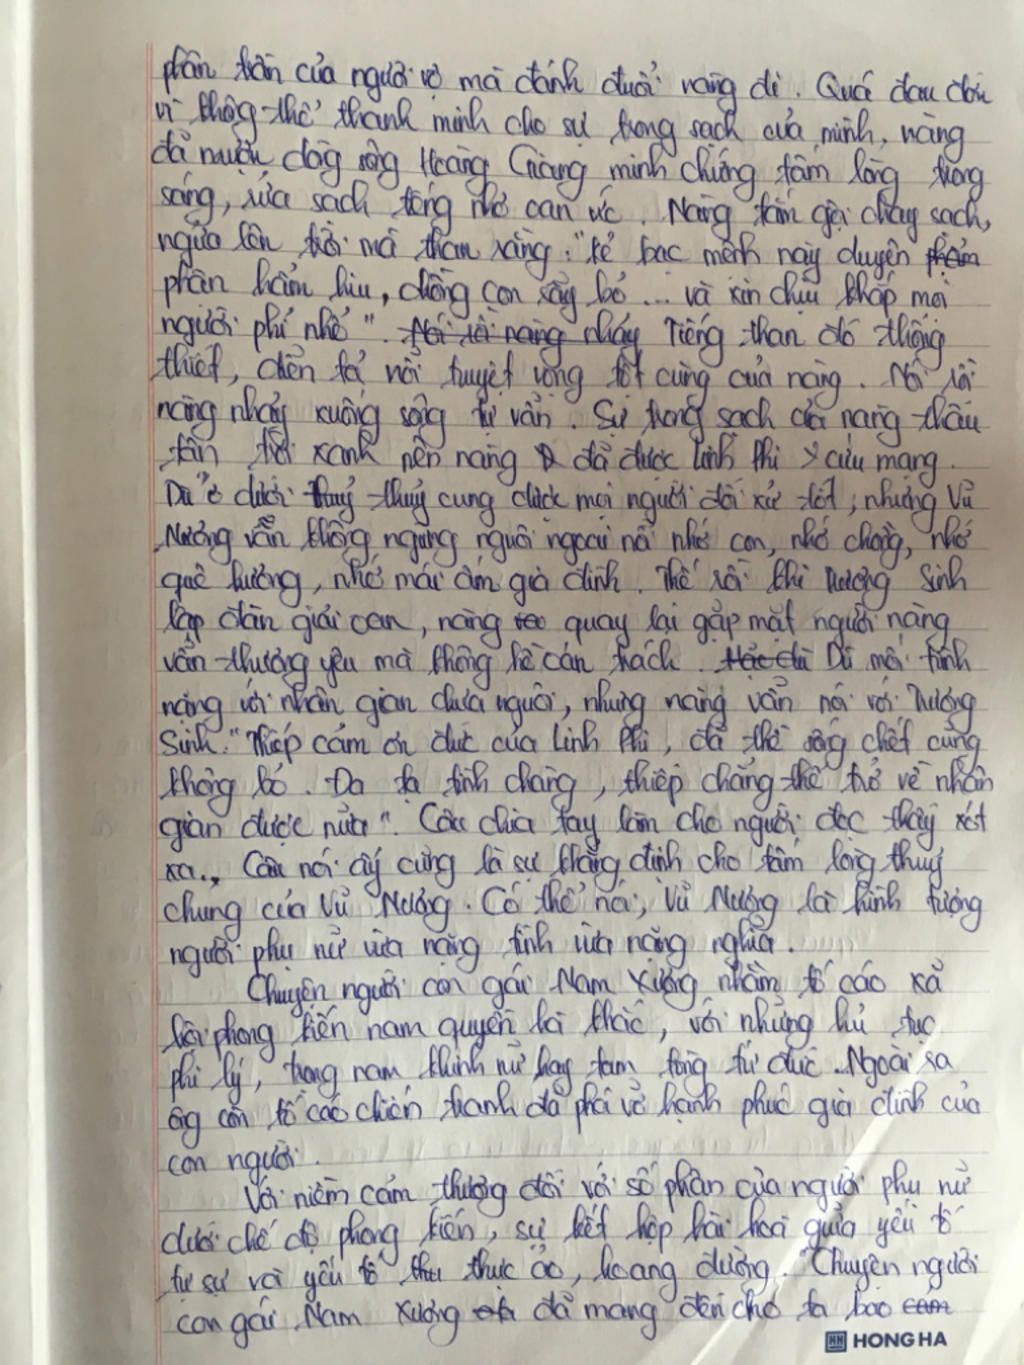 phân trần của người vợ mà đánh đuổi nàng đi. Quá đau đớn
vì không thể thanh minh cho sự trong sạch của mình, nàng
đã mượn dòng sông Hoàng Giang minh chứng tấm lòng trong
sáng, rửa sạch tiếng nhơ oan ức. Nàng tắm gội chay sạch,
ngửa lên trời mà than rằng: "kẻ bạc mệnh này duyên phậm
phận hẩm hiu, chồng con rẫy bỏ... và xin chịu khắp mọi
người phỉ nhổ". Nói rồi nàng nhảy Tiếng than đó thống
thiết, diễn tả nỗi tuyệt vọng tột cùng của nàng. Nói rồi
nàng nhảy xuống sông tự vẫn. Sự trong sạch của nàng thấu
tận trời xanh nên nàng đã được Linh Phi cứu mạng.
Dù ở dưới thuỷ thuỷ cung được mọi người đối xử tốt, nhưng Vũ
Nương vẫn không ngừng nguôi ngoai nỗi nhớ con, nhớ chồng, nhớ
quê hương, nhớ mái ấm gia đình. Thế rồi khi Trương Sinh
lập đàn giải oan, nàng quay lại gặp mặt người nàng
vẫn thương yêu mà không hề oán trách. Mặc dù Dù mối tình
nàng với nhân gian chưa nguôi, nhưng nàng vẫn nói với Trương
Sinh: "Thiếp cảm ơn đức của Linh Phi, đã thề sống chết cũng
không bỏ. Đa tạ tình chàng, thiếp chẳng thể trở về nhân
gian được nữa". Câu chia tay làm cho người đọc thấy xót
xa., Câu nói ấy cũng là sự khẳng định cho tấm lòng thuỷ
chung của Vũ Nương. Có thể nói, Vũ Nương là hình tượng
người phụ nữ vừa nặng tình vừa nặng nghĩa.
Chuyện người con gái Nam Xương nhằm tố cáo xã
hội phong kiến nam quyền hà khắc, với những hủ tục
phi lý, trọng nam khinh nữ hay tam tòng tứ đức. Ngoài ra
ông còn tố cáo chiến tranh đã phá vỡ hạnh phúc gia đình của
con người.
Với niềm cảm thương đối với số phận của người phụ nữ
dưới chế độ phong kiến, sự kết hợp hài hoà giữa yếu tố
tự sự và yếu tố thực ảo, hoang đường. "Chuyện người
con gái Nam Xương đã mang đến cho ta bao cảm
HH HONG HA